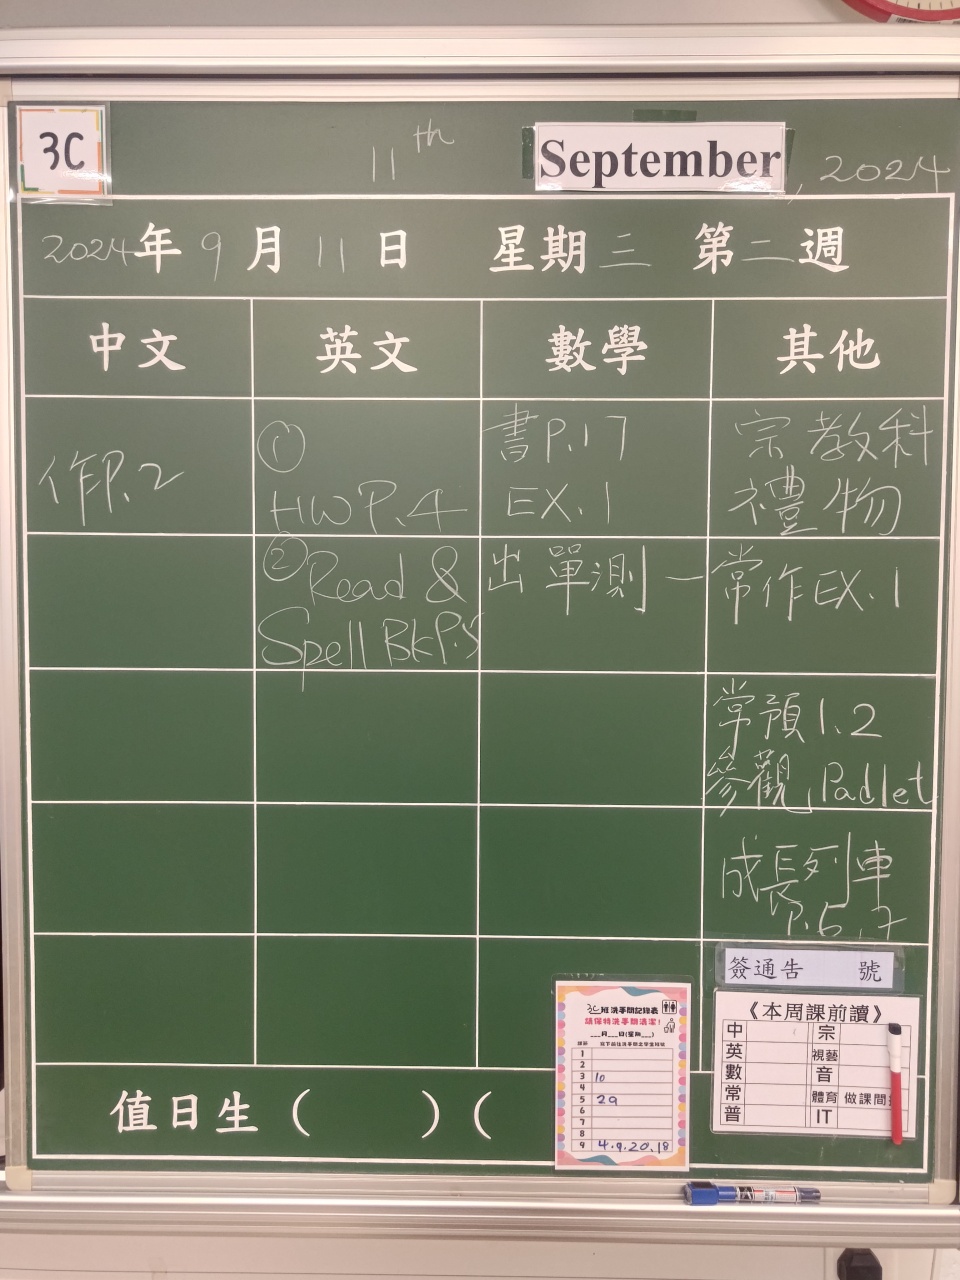 3C
11th September, 2024
2024年9月11日 星期三 第二週
中文 英文 數學 其他
作P.2
①
HW P.4
② Read &
Spell Bk P.5
書P.17
EX.1
出單測一
宗教科
禮物
常作EX.1
常預1.2
參觀, Padlet
成長列車
P.6, 7
簽通告 號
3C班洗手間記錄表
請保持洗手間清潔!
___月___日(星期___)
課節 寫下前往洗手間之學生班號
1
2
3 10
4
5 29
6
7
8
9 4.9.20.18
《本周課前讀》
中 宗
英 視藝
數 音
常 體育 做課間
普 IT
值日生( )(